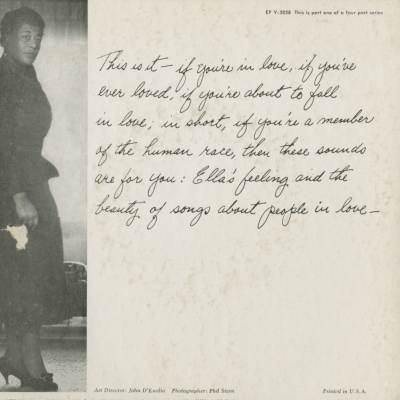 EP V-5058 This is part one of a four part series
This is it — if you're in love, if you've
ever loved, if you're about to fall
in love; in short, if you're a member
of the human race, then these sounds
are for you: Ella's feeling and the
beauty of songs about people in love—
Art Director: John D'Emilio Photographer: Phil Stern
Printed in U.S.A.